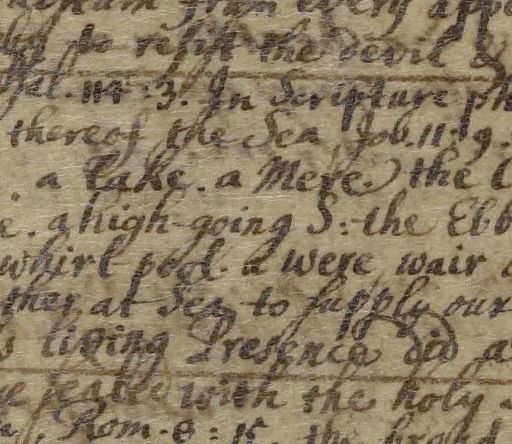 from every appe
to resist the devil &
Psal. 114:3. In Scripture ph
thereof the Sea Job. 11. 9.
. a Lake. a Mere. the
e. a high-going S: the Ebb
whirl pool. a were wair
ther at Sea, to supply our
s living Presence did a
sealed with the holy
Rom. 8: 15. the